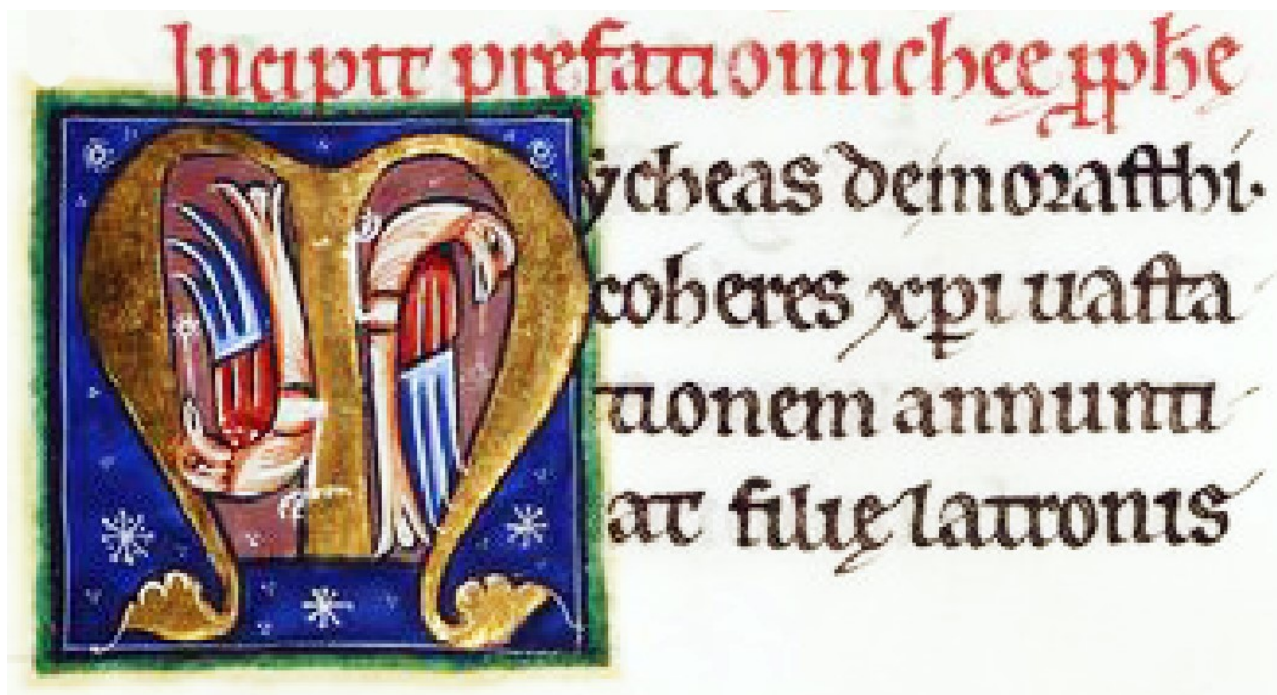 Incipit prefatio michee pphe
Mycheas de morasthi.
coheres xpi uasta
tionem annunti
at filię latronis